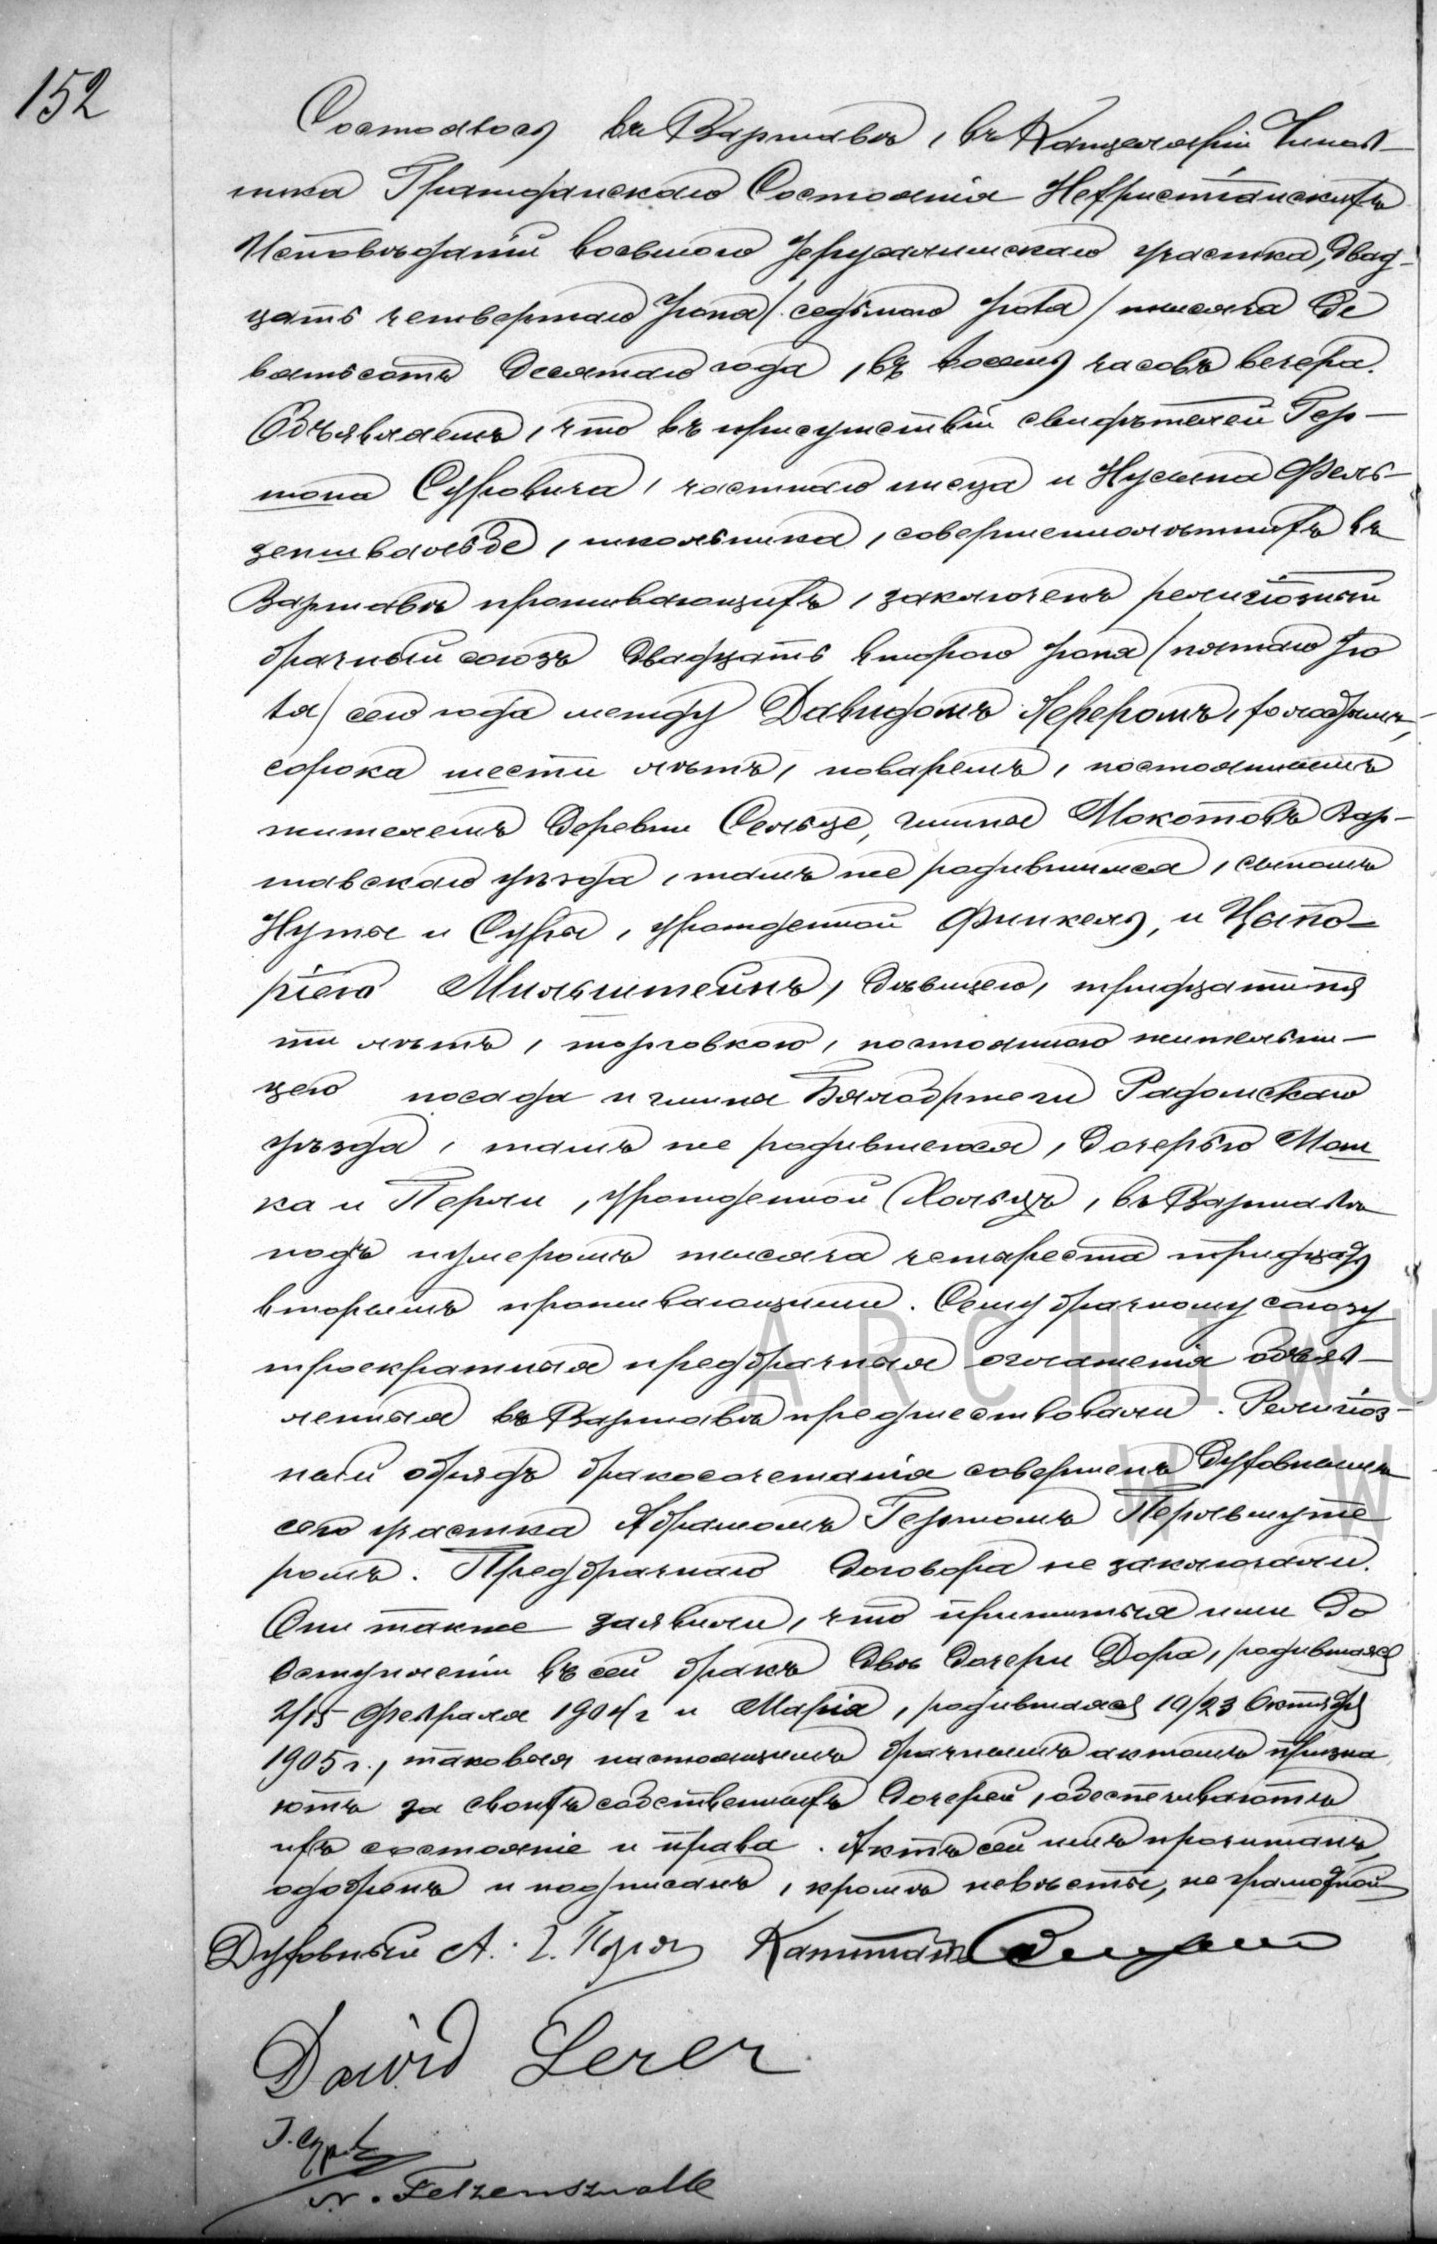 152
Состоялось въ Варшавѣ, въ Канцеляріи Чинов-
ника Гражданскаго Состоянія Нехристіанскихъ
Исповѣданій восьмого Іерусалимскаго участка, двад-
цать четвертаго Іюня /седьмого Іюля/ тысяча де
вятьсотъ десятаго года, въ восемь часовъ вечера.
Объявляемъ, что въ присутствіи свидѣтелей Гер-
шона Суровича, частнаго писца и Нусына Фель-
зеншвальбе, школьника, совершеннолѣтнихъ въ
Варшавѣ проживающихъ, заключенъ религіозный
брачный союзъ двадцать второго Іюня /пятаго Ію
ля/ сего года между Давидомъ Лереромъ, холостымъ,
сорока шести лѣтъ, поваремъ, постояннымъ
жителемъ деревни Сельце, гмины Мокотовъ Вар-
шавскаго уѣзда, тамъ же родившимся, сыномъ
Нуты и Суры, урожденной Финкель, и Ципо-
ріею Мильштейнъ, дѣвицею, тридцати пя
ти лѣтъ, торговкою, постоянною жительни-
цею посада и гмины Бялобржеги Радомскаго
уѣзда, тамъ же родившеюся, дочерью Мош
ка и Перли, урожденной Хольцъ, въ Варшавѣ
подъ нумеромъ тысяча четыреста тридцать
вторымъ проживающими. Сему брачному союзу
троекратныя предбрачныя оглашенія объяв-
ленныя въ Варшавѣ предшествовали. Религіоз-
ный обрядъ бракосочетанія совершенъ Духовнымъ
сего участка Абрамомъ Гершомъ Перльмуте
ромъ. Предбрачнаго договора не заключали.
Они также заявили, что прижитыя ими до
вступленія въ сей бракъ двѣ дочери Дора, родившаяся
2/15 Февраля 1904 г и Марія, родившаяся 10/23 Октября
1905 г., таковыя настоящимъ брачнымъ актомъ призна
ютъ за своихъ собственныхъ дочерей, обеспечиваютъ
ихъ состояніе и права. Актъ сей имъ прочитанъ,
одобренъ и подписанъ, кромѣ невѣсты, неграмотной
Духовный А. Г. Перл
Dawid Lerer
N. Felzenszwalbe
ARCHIWU
W W